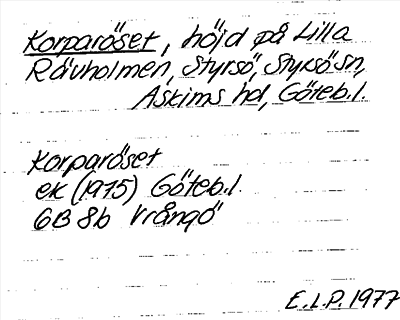 Korparöset, höjd på Lilla
Rävholmen, Styrsö, Styrsö sn,
Askims hd, Göteb.l.
Korparöset
ek (1975) Göteb.l.
6B 8b Vrångö
E.L.P. 1977